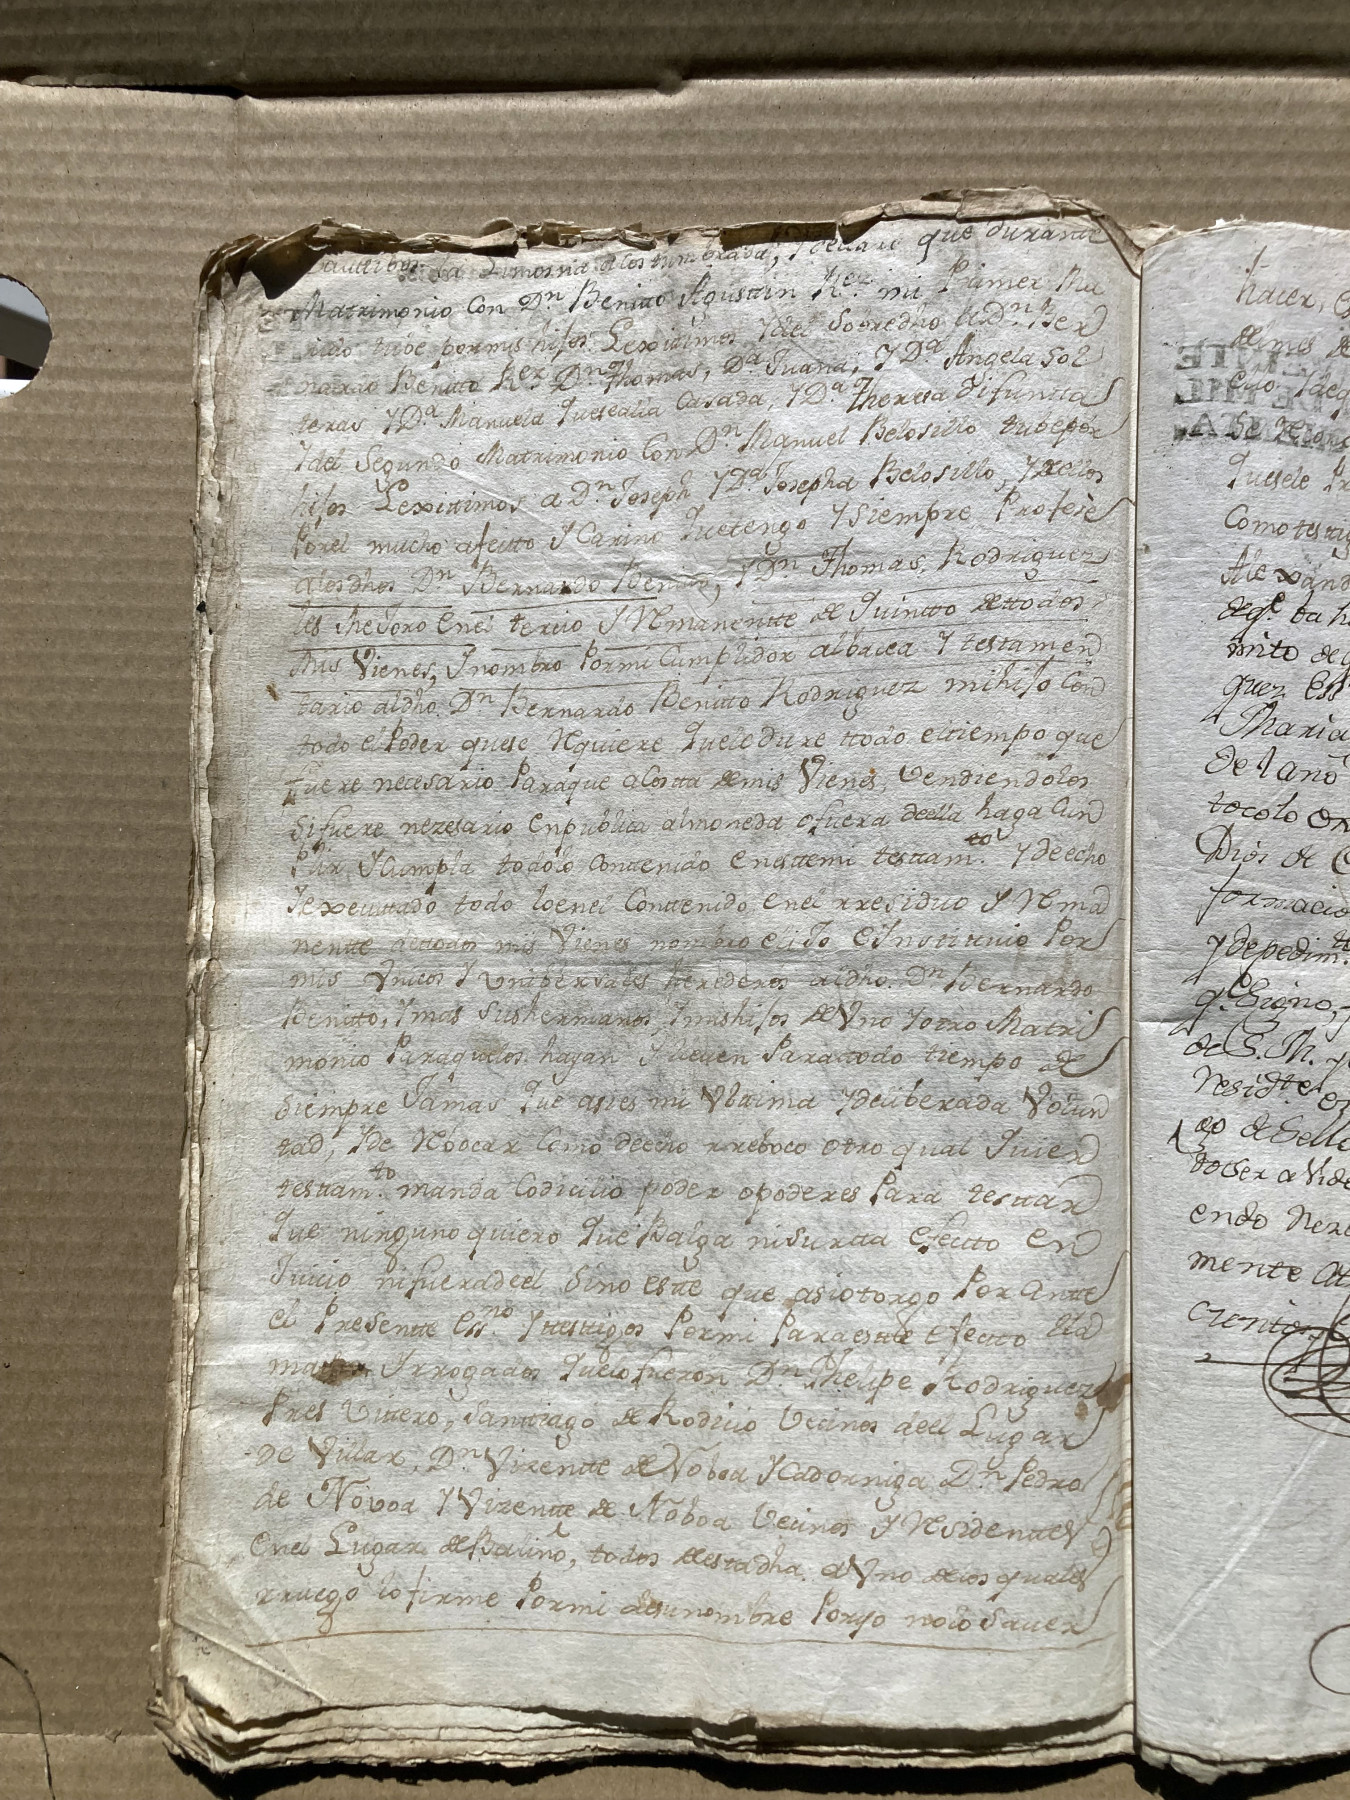 cauttibos la Limosna acostumbrada, Ydeclaro que durante
Matrimonio Con Dn Benitto Agusttin Rez mi Primer Ma
rido tube por mis hijos Lexitimos Ydel Sobredho a Dn Ber
nardo Benitto Rez Dn Thomas, Da Juana, Y Da Angela Sol
teras Y Da Manuela Quesealla Casada, Y Da Theresa difunta
Ydel Segundo Matrimonio Con Dn Manuel Belosillo tubepor
hijos Lexittimos a Dn Joseph Y Da Josepha Belosillo, Y
Porel mucho afecto Y Carino Quetengo Y Siempre Profese
alosdhos Dn Bernardo Benitto, Y Dn Thomas, Rodriguez
les Mejoro Enel tercio Y Remanentte de Quintto de ttodos
Mis Vienes, Y nombro Pormi Cumplidor albacea Y testamen
tario aldho Dn Bernardo Benitto Rodriguez mihijo Con
todo el Poder quese Requiere Quele dure ttodo eltiempo que
fuere necesario Paraque acostta de mis Vienes, vendiendolos
Sifuere nezesario enpublica almoneda ofuera deella haga Cun
Plir Ycumpla todolo Conttenido enesttemi testtamto Y decho
Yexecuttado todo loenel Conttenido enel rresiduo Y Rema
nentte dettodos mis Vienes nombro elijo e Instituio Por
mis Vnicos Y Vnibersales herederos aldho Dn Bernardo
Benitto, Ymas Sushermanos Ymishijos de Vno Yotro Matri
monio Paraquelos hayan Y lleven Parattodo tiempo de
Siempre Jamas Que asies mi Vltima Ydeliberada Volun
tad, Yde Rebocar Como decho rreboco otro qual Quier
testtamto manda Codicilio poder opoderes Para testtar
Que ninguno quiero Que Balga niSurtta Efectto en
Juicio nifueradeel Sino estte que asiotorgo Por Antte
el Presentte Essno Yttesttigos Pormi Paraestte Efectto lla
mados Yrrogados Quelofueron Dn Phelipe Rodriguez
Pres Vittero, Santtiago de Rodicio Vecinos deel Lugar
de Villar, Dn Vizentte de Noboa YCadorniga Dn Pedro
de Novoa Y Vizentte de Noboa Vecinos Y Residenttes
Enel Lugar de Balino, todos destadha aVno delos quales
rruego lofirme Pormi desunombre Poryo nolo Saver
hacer,
de mis
Se
Quesele
Comotestig
Alexand
quez
Maria
de
tocolo
Dios de
formacio
Ydepedimto
qe Signo,
de S. M.
Residte
de Sello
endo
mente